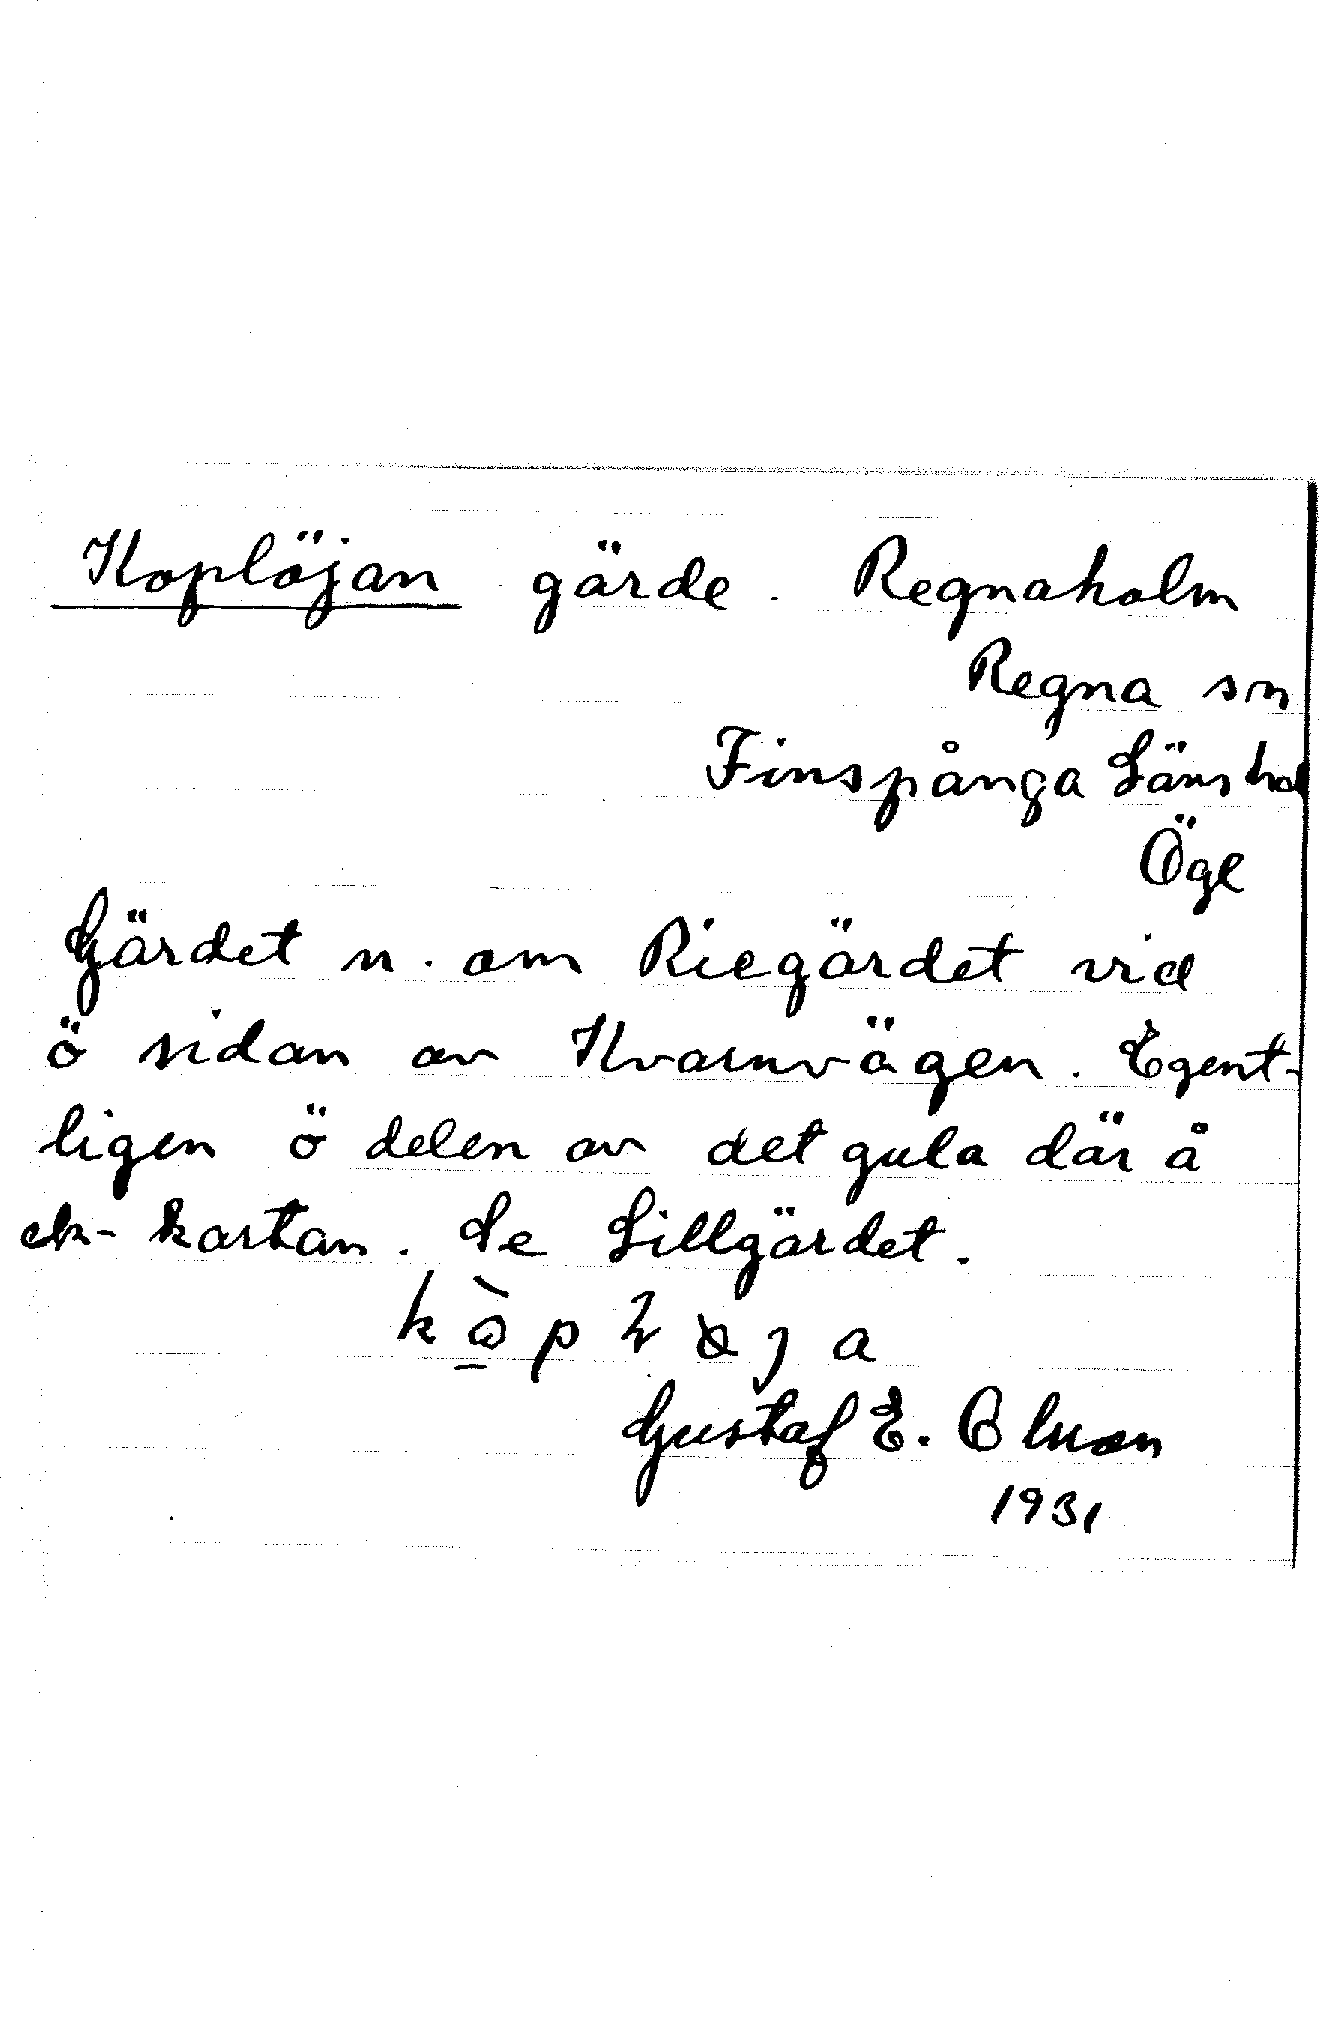 Koplöjan gärde. Regnaholm
Regna sn
Finspånga Läns hd
Ögl
Gärdet n. om Riegärdet vid
ö sidan av Kvarnvägen. Egent-
ligen ö delen av det gula där å
ek-kartan. Se Lillgärdet.
Gustaf E. Olsson
1931